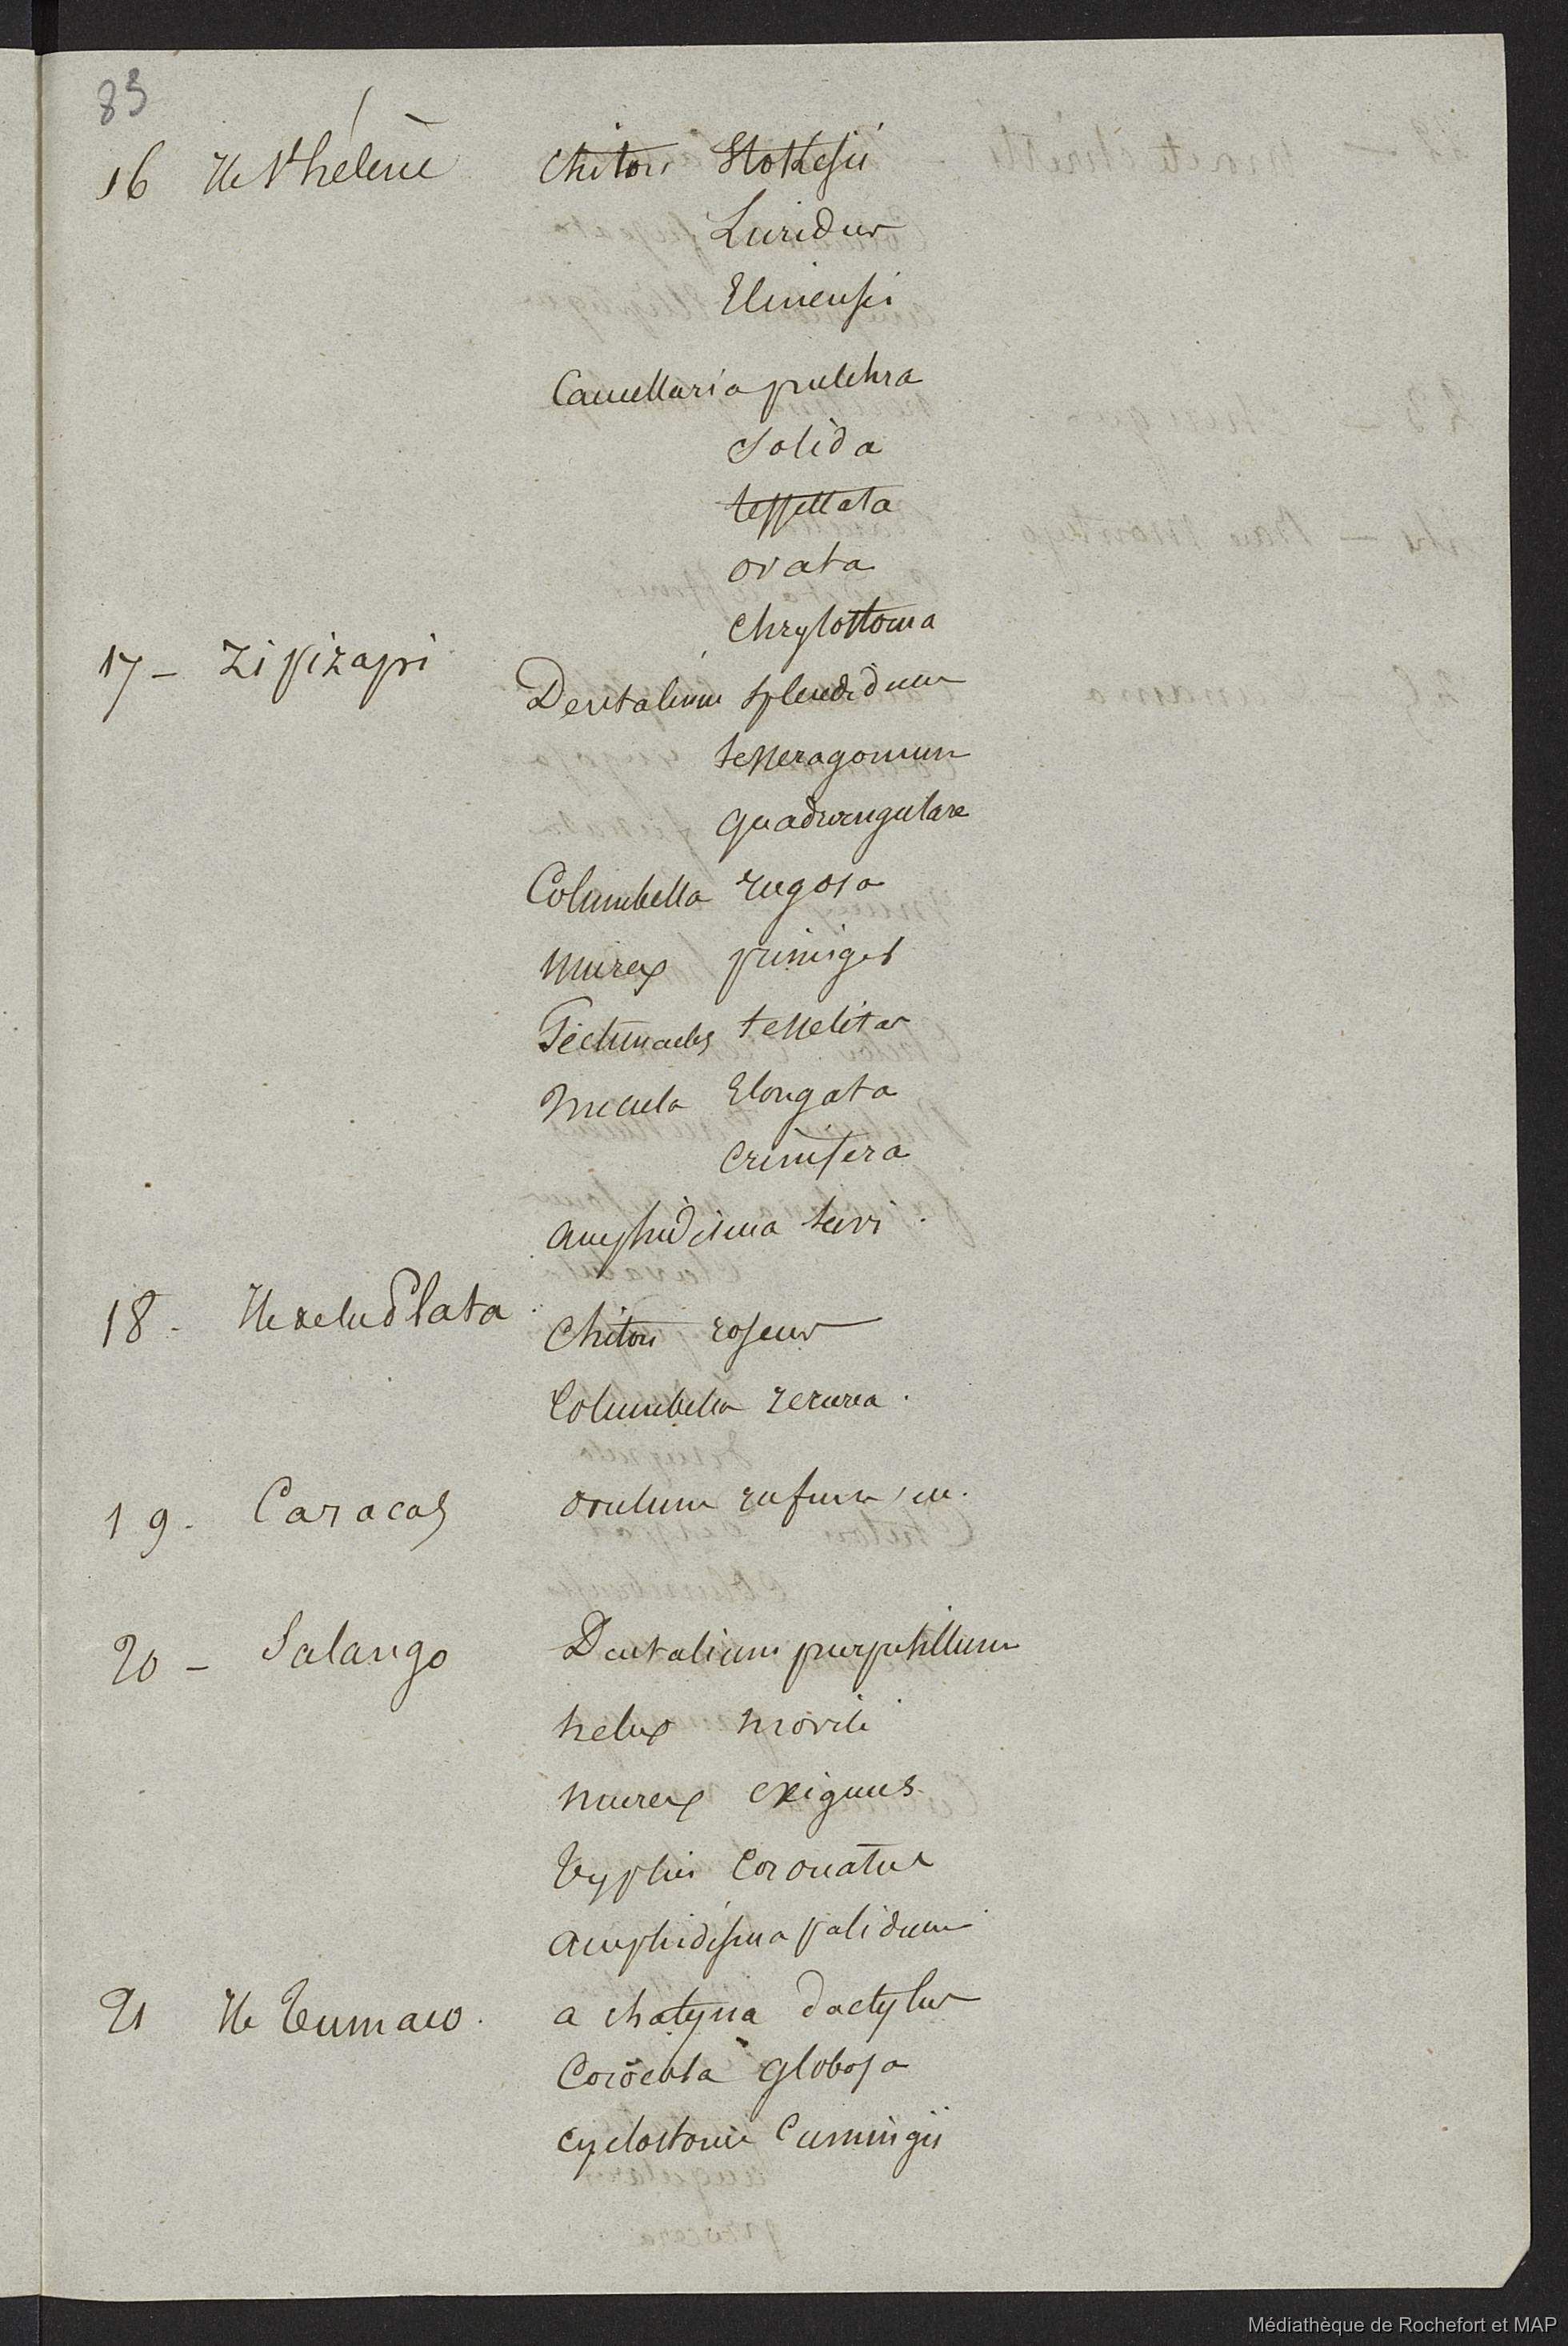 83
16 Ile Ste hélène Chiton Stokesii
Luridus
Elenensis
Cancellaria pulchra
Solida
tessellata
ovata
Chrysostoma
17 - Zipizapi
Dentalium splendidum
tesseragonum
quadrangulare
Columbella rugosa
Murex
Pectunculus
Nucula Elongata
Crenifera
18 - Ile de la Plata
Chiton roseus
Columbella
19 - Caracas ovulum rufum, m.
20 - Salango Dentalium
helix
Murex exiguus
Typhis Coronatus
amphidesma palidum
21 Ile Tumaco. achatina dactylus
globosa
Cyclostome Cumingii
Médiathèque de Rochefort et MAP